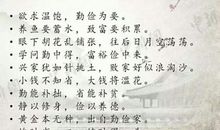 · 欲求温饱，勤俭为要。
· 养鱼要蓄水，致富要积累。
· 眼下胡花乱铺张，往后日月空荡荡。
· 学问勤中得，富裕俭中来。
· 兴家犹如针挑土，败家好似浪淘沙。
· 小钱不知省，大钱将滥花。
· 勤能补拙，省能补贫。
· 静以修身，俭以养德。
· 黄金本无种，出自勤俭家。